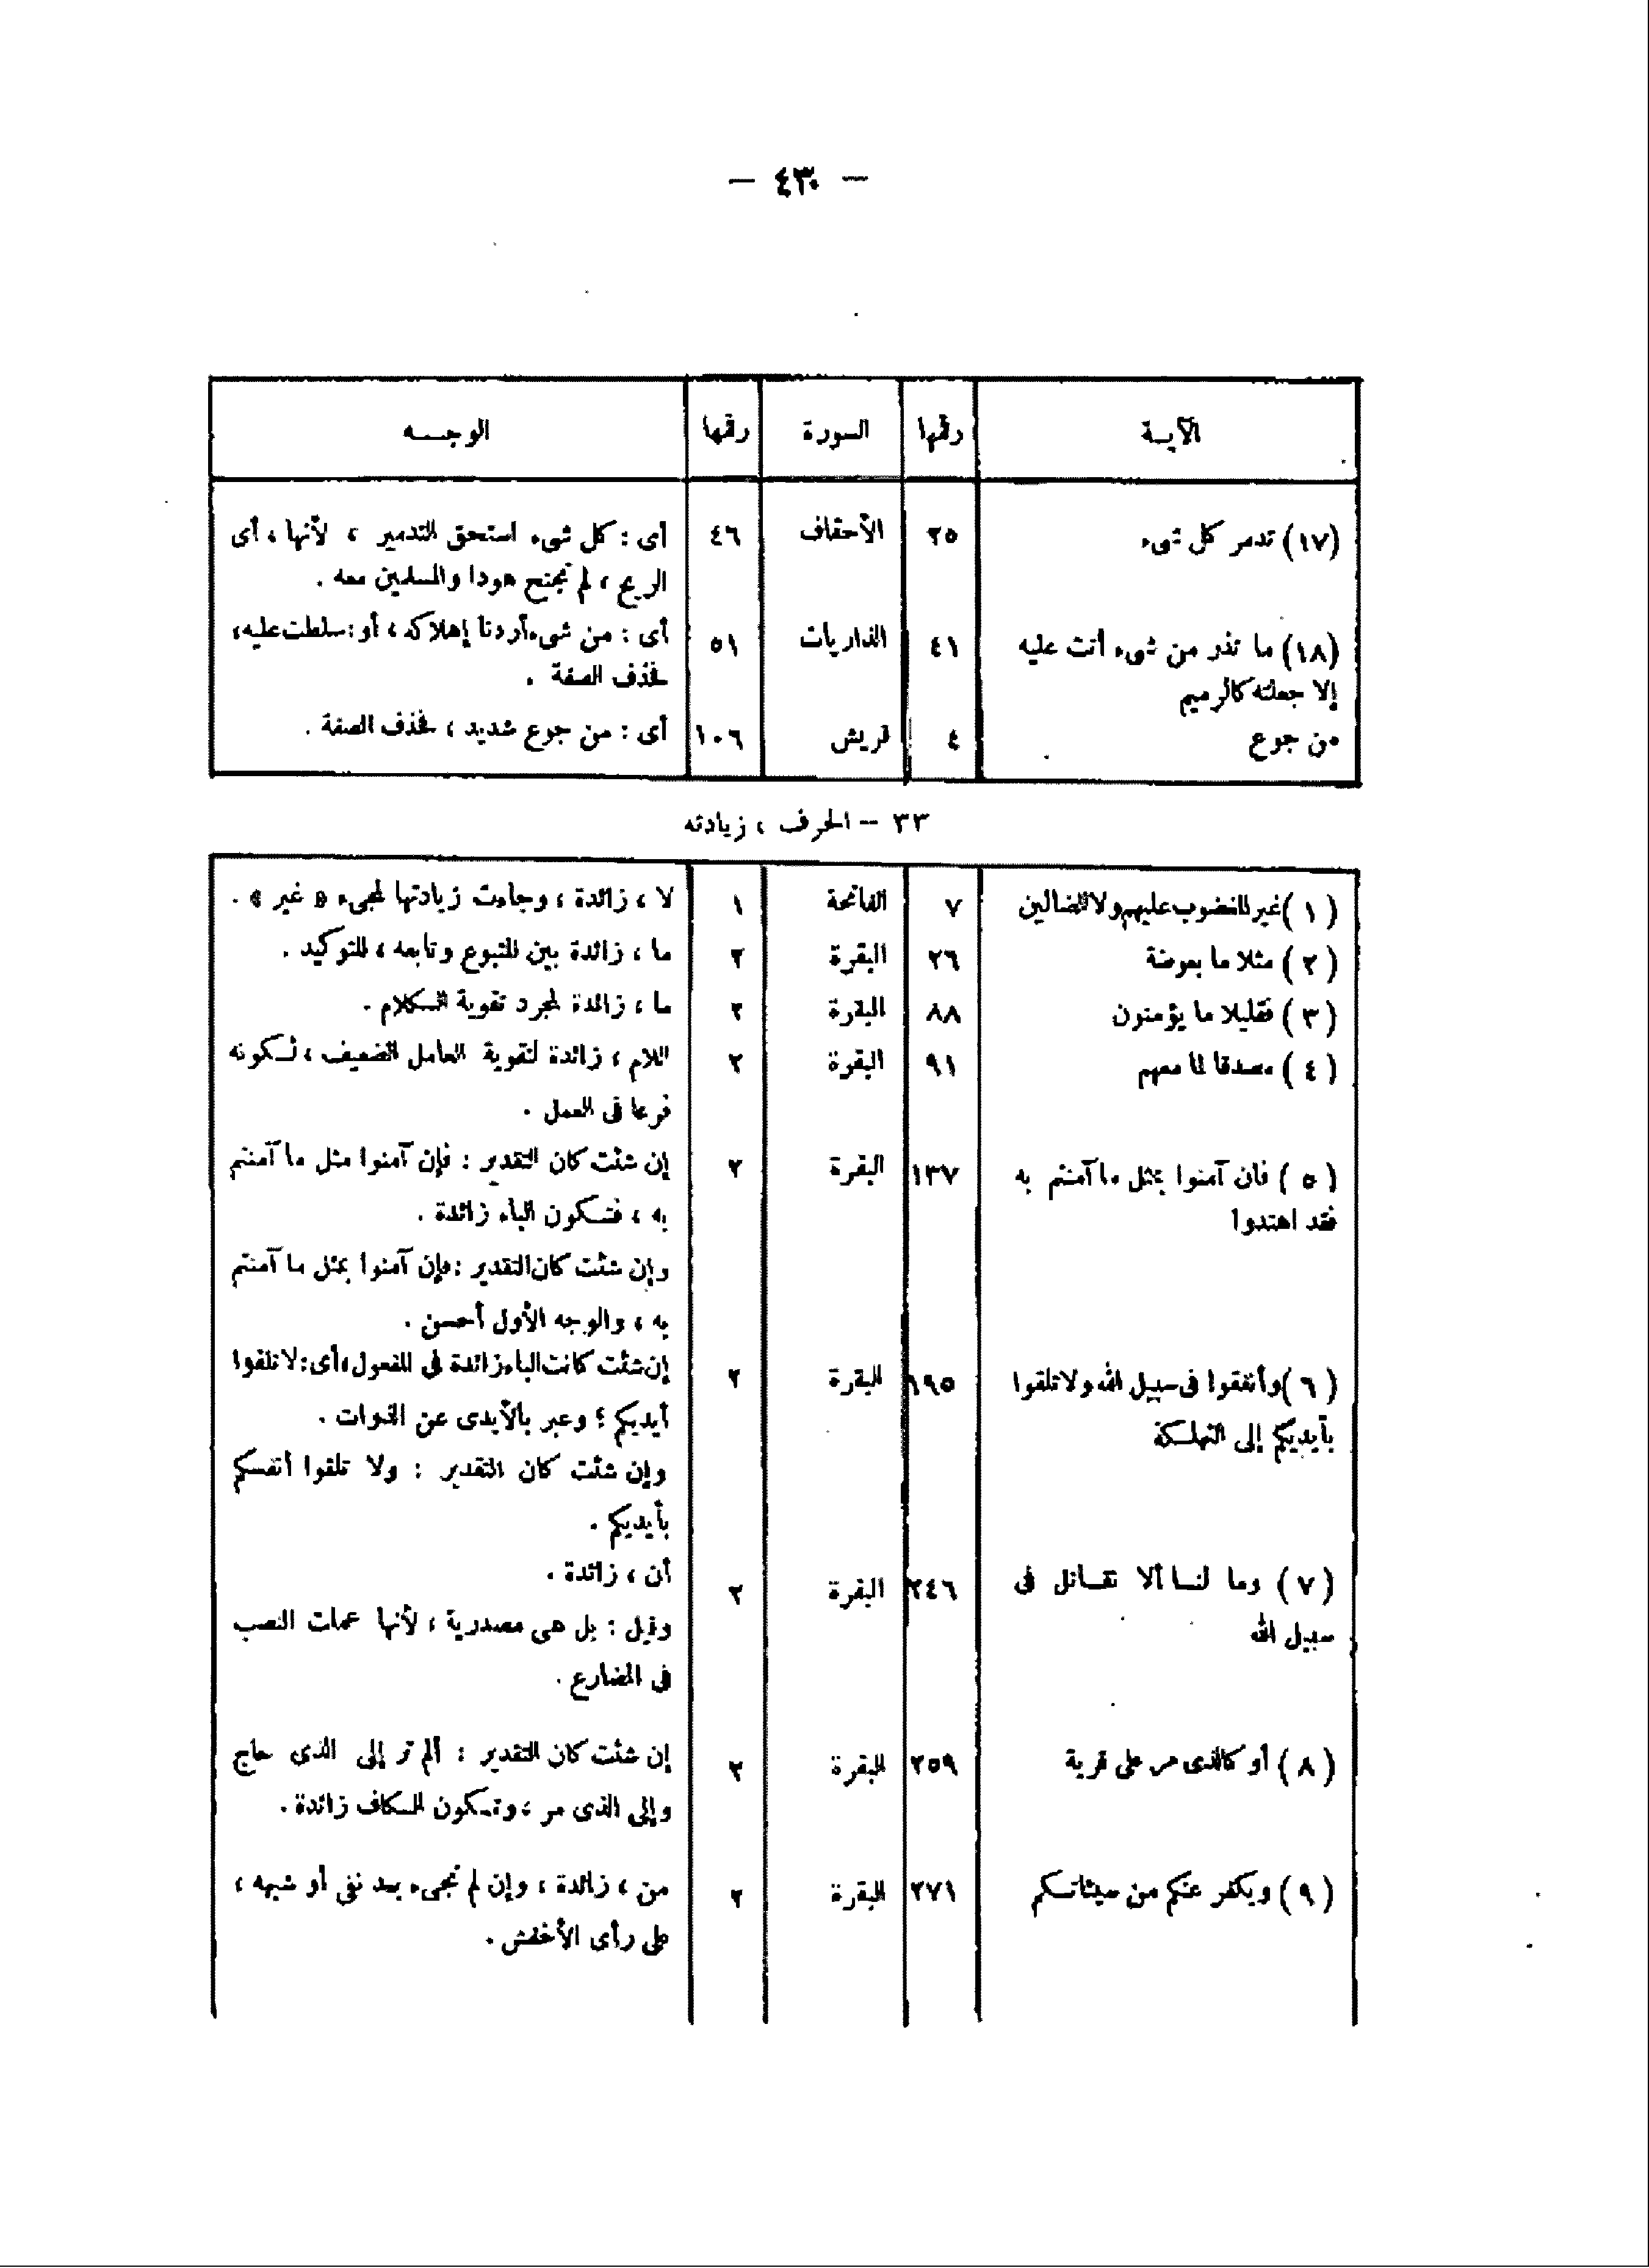 — ٤٣٠ —
الآيـة | رقمها | السورة | رقمها | الوجـــه
(١٧) تدمر كل شىء | ٢٥ | الأحقاف | ٤٦ | أى : كل شىء استحق التدمير ، لأنها ، أى
الريح ، لم تجتح هودا والمسلمين معه .
(١٨) ما تذر من شىء أتت عليه | ٤١ | الذاريات | ٥١ | أى : من شىء أردنا إهلاكه ، أو : سلطت عليه ،
إلا جعلته كالرميم | فحذف الصفة .
من جوع | ٤ | قريش | ١٠٦ | أى : من جوع شديد ، فحذف الصفة .
٣٣ – الحرف ، زيادته
( ١ ) غير المغضوب عليهم ولا الضالين | ٧ | الفاتحة | ١ | لا ، زائدة ، وجاءت زيادتها لمجىء « غير » .
( ٢ ) مثلا ما بعوضة | ٢٦ | البقرة | ٢ | ما ، زائدة بين المتبوع وتابعه ، للتوكيد .
( ٣ ) فقليلا ما يؤمنون | ٨٨ | البقرة | ٢ | ما ، زائدة لمجرد تقوية الكلام .
( ٤ ) مصدقا لما معهم | ٩١ | البقرة | ٢ | اللام ، زائدة لتقوية العامل الضعيف ، لكونه
فرعا فى العمل .
( ٥ ) فان آمنوا بمثل ما آمنتم به | ١٣٧ | البقرة | ٢ | إن شئت كان التقدير : فإن آمنوا مثل ما آمنتم
فقد اهتدوا | به ، فتكون الباء زائدة .
وإن شئت كان التقدير : فإن آمنوا بمثل ما آمنتم
به ، والوجه الأول أحسن .
( ٦ ) وأنفقوا فى سبيل الله ولا تلقوا | ١٩٥ | البقرة | ٢ | إن شئت كانت الباء زائدة فى المفعول ، أى : لا تلقوا
بأيديكم إلى التهلكة | أيديكم ؛ وعبر بالأيدى عن الذوات .
وإن شئت كان التقدير : ولا تلقوا أنفسكم
بأيديكم .
( ٧ ) وما لنا ألا نقاتل فى | ٢٤٦ | البقرة | ٢ | أن ، زائدة .
سبيل الله | وقيل : بل هى مصدرية ، لأنها عملت النصب
فى المضارع .
( ٨ ) أو كالذى مر على قرية | ٢٥٩ | البقرة | ٢ | إن شئت كان التقدير : ألم تر إلى الذى حاج
وإلى الذى مر ، وتكون الكاف زائدة .
( ٩ ) ويكفر عنكم من سيئاتكم | ٢٧١ | البقرة | ٢ | من ، زائدة ، وإن لم تجىء بعد نفى أو شبهه ،
على رأى الأخفش .